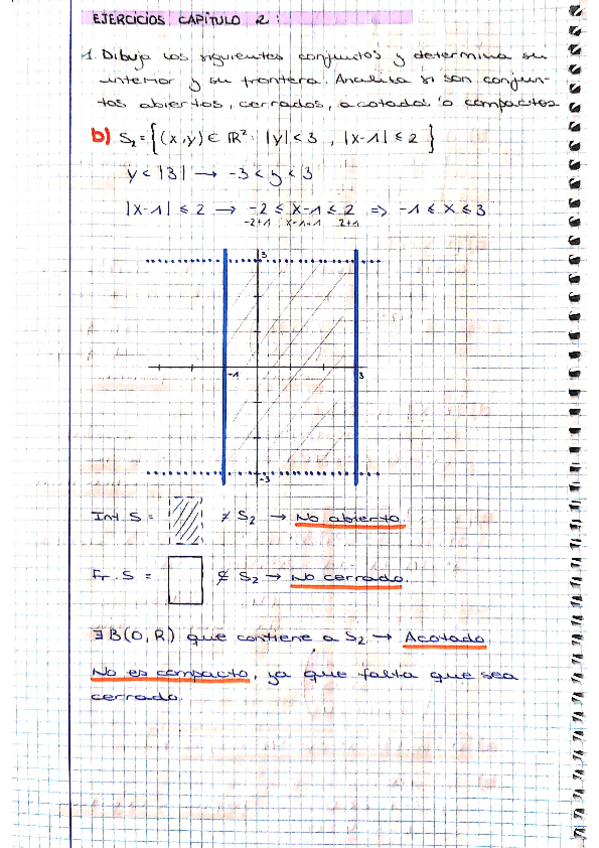 EJERCICIOS CAPÍTULO 2:
1. Dibuja los siguientes conjuntos y determina su
interior y su frontera. Analiza si son conjun-
tos abiertos, cerrados, acotados o compactos
b) S₂ = {(x,y) ∈ ℝ² : |y| < 3 , |x-1| ≤ 2}
y < |3| → -3 < y < 3
|x-1| ≤ 2 → -2 ≤ x-1 ≤ 2 ⇒ -1 ≤ x ≤ 3
-2+1 x-1+1 2+1
3
-1 3
-3
Int. S = ≠ S₂ → No abierto.
Fr. S = ⊄ S₂ → No cerrado.
∃ B(0,R) que contiene a S₂ → Acotado.
No es compacto, ya que falta que sea
cerrado.